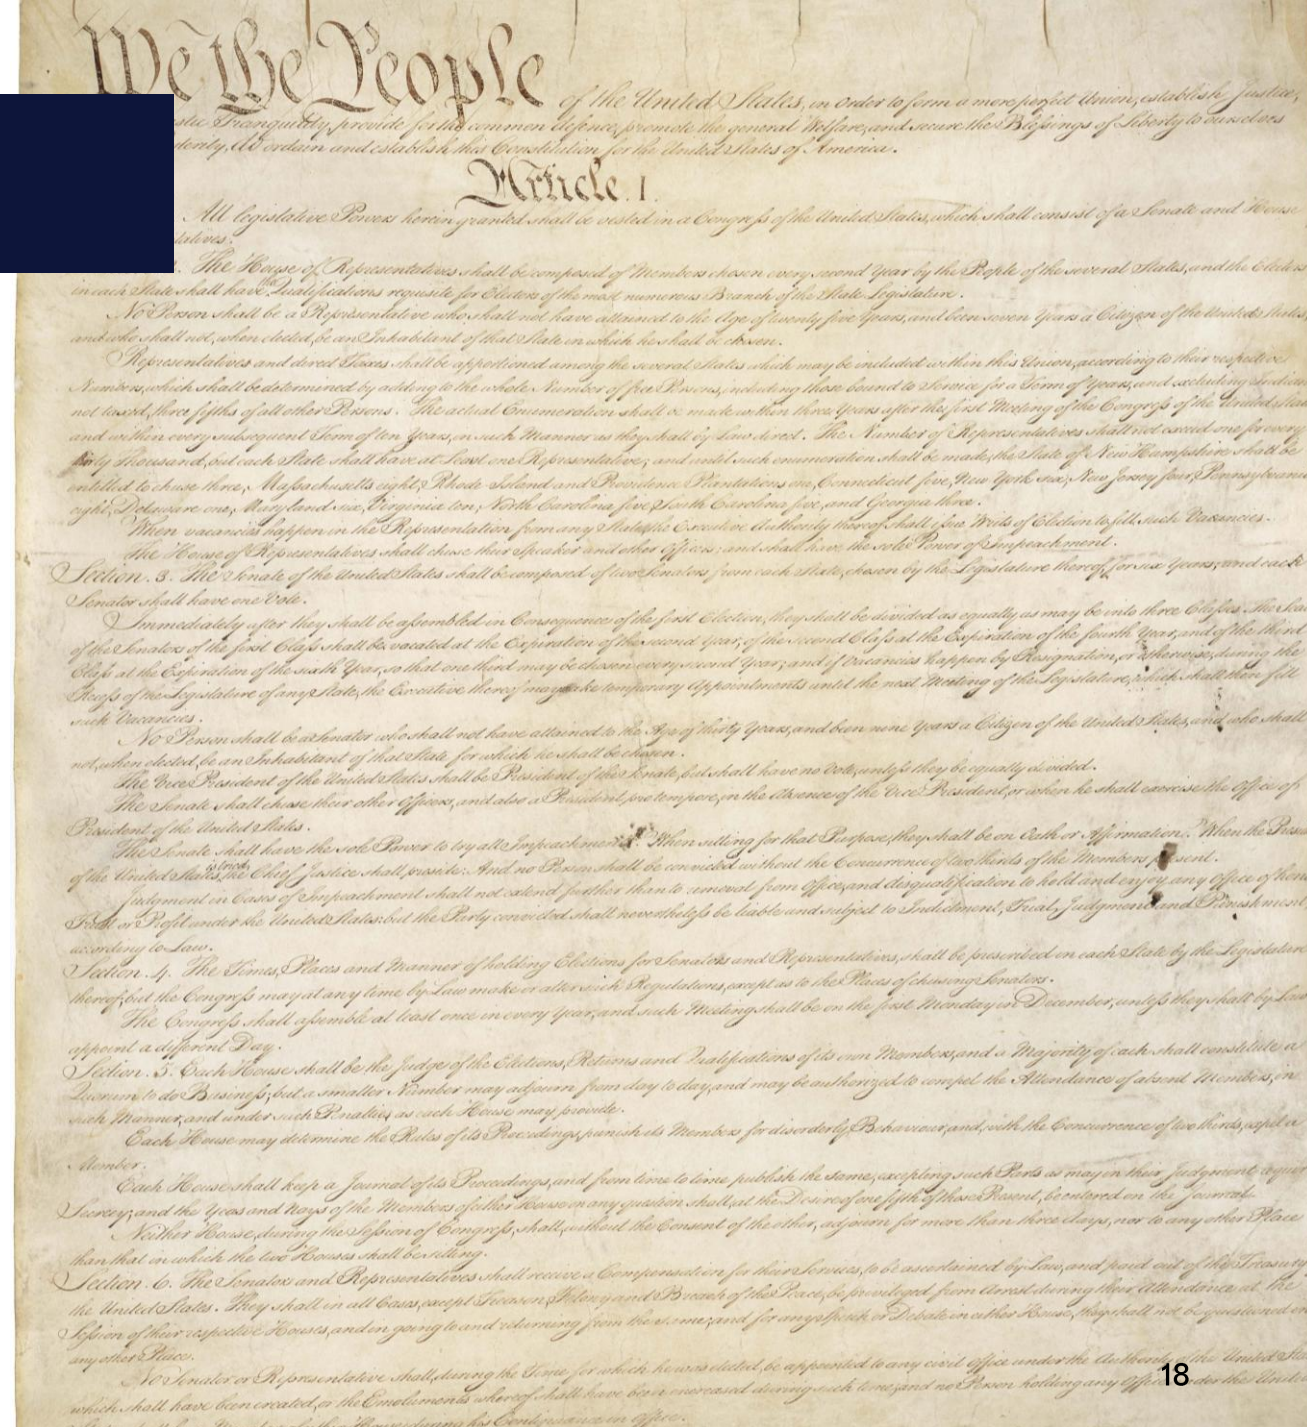 We the People of the United States, in Order to form a more perfect Union, establish Justice,
Tranquility, provide for the common defence, promote the general Welfare, and secure the Blessings of Liberty to ourselves
do ordain and establish this Constitution for the United States of America.
Article. I.
All legislative Powers herein granted shall be vested in a Congress of the United States, which shall consist of a Senate and House
tatives.
The House of Representatives shall be composed of Members chosen every second Year by the People of the several States, and the Electors
in each State shall have the Qualifications requisite for Electors of the most numerous Branch of the State Legislature.
No Person shall be a Representative who shall not have attained to the Age of twenty five Years, and been seven Years a Citizen of the United States,
and who shall not, when elected, be an Inhabitant of that State in which he shall be chosen.
Representatives and direct Taxes shall be apportioned among the several States which may be included within this Union, according to their respective
Numbers, which shall be determined by adding to the whole Number of free Persons, including those bound to Service for a Term of Years, and excluding Indians
not taxed, three fifths of all other Persons. The actual Enumeration shall be made within three Years after the first Meeting of the Congress of the United States,
and within every subsequent Term of ten Years, in such Manner as they shall by Law direct. The Number of Representatives shall not exceed one for every
thirty Thousand, but each State shall have at Least one Representative; and until such enumeration shall be made, the State of New Hampshire shall be
entitled to chuse three, Massachusetts eight, Rhode Island and Providence Plantations one, Connecticut five, New York six, New Jersey four, Pennsylvania
eight, Delaware one, Maryland six, Virginia ten, North Carolina five, South Carolina five, and Georgia three.
When vacancies happen in the Representation from any State, the Executive Authority thereof shall issue Writs of Election to fill such Vacancies.
The House of Representatives shall chuse their Speaker and other Officers; and shall have the sole Power of Impeachment.
Section. 3. The Senate of the United States shall be composed of two Senators from each State, chosen by the Legislature thereof, for six Years; and each
Senator shall have one Vote.
Immediately after they shall be assembled in Consequence of the first Election, they shall be divided as equally as may be into three Classes. The Sea
of the Senators of the first Class shall be vacated at the Expiration of the second Year, of the second Class at the Expiration of the fourth Year, and of the third
Class at the Expiration of the sixth Year, so that one third may be chosen every second Year; and if Vacancies happen by Resignation, or otherwise, during the
Recess of the Legislature of any State, the Executive thereof may make temporary Appointments until the next Meeting of the Legislature, which shall then fill
such Vacancies.
No Person shall be a Senator who shall not have attained to the Age of thirty Years, and been nine Years a Citizen of the United States, and who shall
not, when elected, be an Inhabitant of that State for which he shall be chosen.
The Vice President of the United States shall be President of the Senate, but shall have no Vote, unless they be equally divided.
The Senate shall chuse their other Officers, and also a President pro tempore, in the Absence of the Vice President, or when he shall exercise the Office of
President of the United States.
The Senate shall have the sole Power to try all Impeachments. When sitting for that Purpose, they shall be on Oath or Affirmation. When the Presi
of the United States is tried, the Chief Justice shall preside: And no Person shall be convicted without the Concurrence of two thirds of the Members present.
Judgment in Cases of Impeachment shall not extend further than to removal from Office, and disqualification to hold and enjoy any Office of hono
Trust or Profit under the United States: but the Party convicted shall nevertheless be liable and subject to Indictment, Trial, Judgment and Punishment,
according to Law.
Section. 4. The Times, Places and Manner of holding Elections for Senators and Representatives, shall be prescribed in each State by the Legislature
thereof; but the Congress may at any time by Law make or alter such Regulations, except as to the Places of chusing Senators.
The Congress shall assemble at least once in every Year, and such Meeting shall be on the first Monday in December, unless they shall by Law
appoint a different Day.
Section. 5. Each House shall be the Judge of the Elections, Returns and Qualifications of its own Members, and a Majority of each shall constitute a
Quorum to do Business; but a smaller Number may adjourn from day to day, and may be authorized to compel the Attendance of absent Members, in
such Manner, and under such Penalties as each House may provide.
Each House may determine the Rules of its Proceedings, punish its Members for disorderly Behaviour, and, with the Concurrence of two thirds, expel a
Member.
Each House shall keep a Journal of its Proceedings, and from time to time publish the same, excepting such Parts as may in their Judgment require
Secrecy; and the Yeas and Nays of the Members of either House on any question shall, at the Desire of one fifth of those Present, be entered on the Journal.
Neither House, during the Session of Congress, shall, without the Consent of the other, adjourn for more than three days, nor to any other Place
than that in which the two Houses shall be sitting.
Section. 6. The Senators and Representatives shall receive a Compensation for their Services, to be ascertained by Law, and paid out of the Treasury
the United States. They shall in all Cases, except Treason, Felony and Breach of the Peace, be privileged from Arrest during their Attendance at the
Session of their respective Houses, and in going to and returning from the same; and for any Speech or Debate in either House, they shall not be questioned in
any other Place.
No Senator or Representative shall, during the Time for which he was elected, be appointed to any civil Office under the Authority of the United Sta
18
which shall have been created, or the Emoluments whereof shall have been increased during such time; and no Person holding any Office under the United
his Continuance in Office.